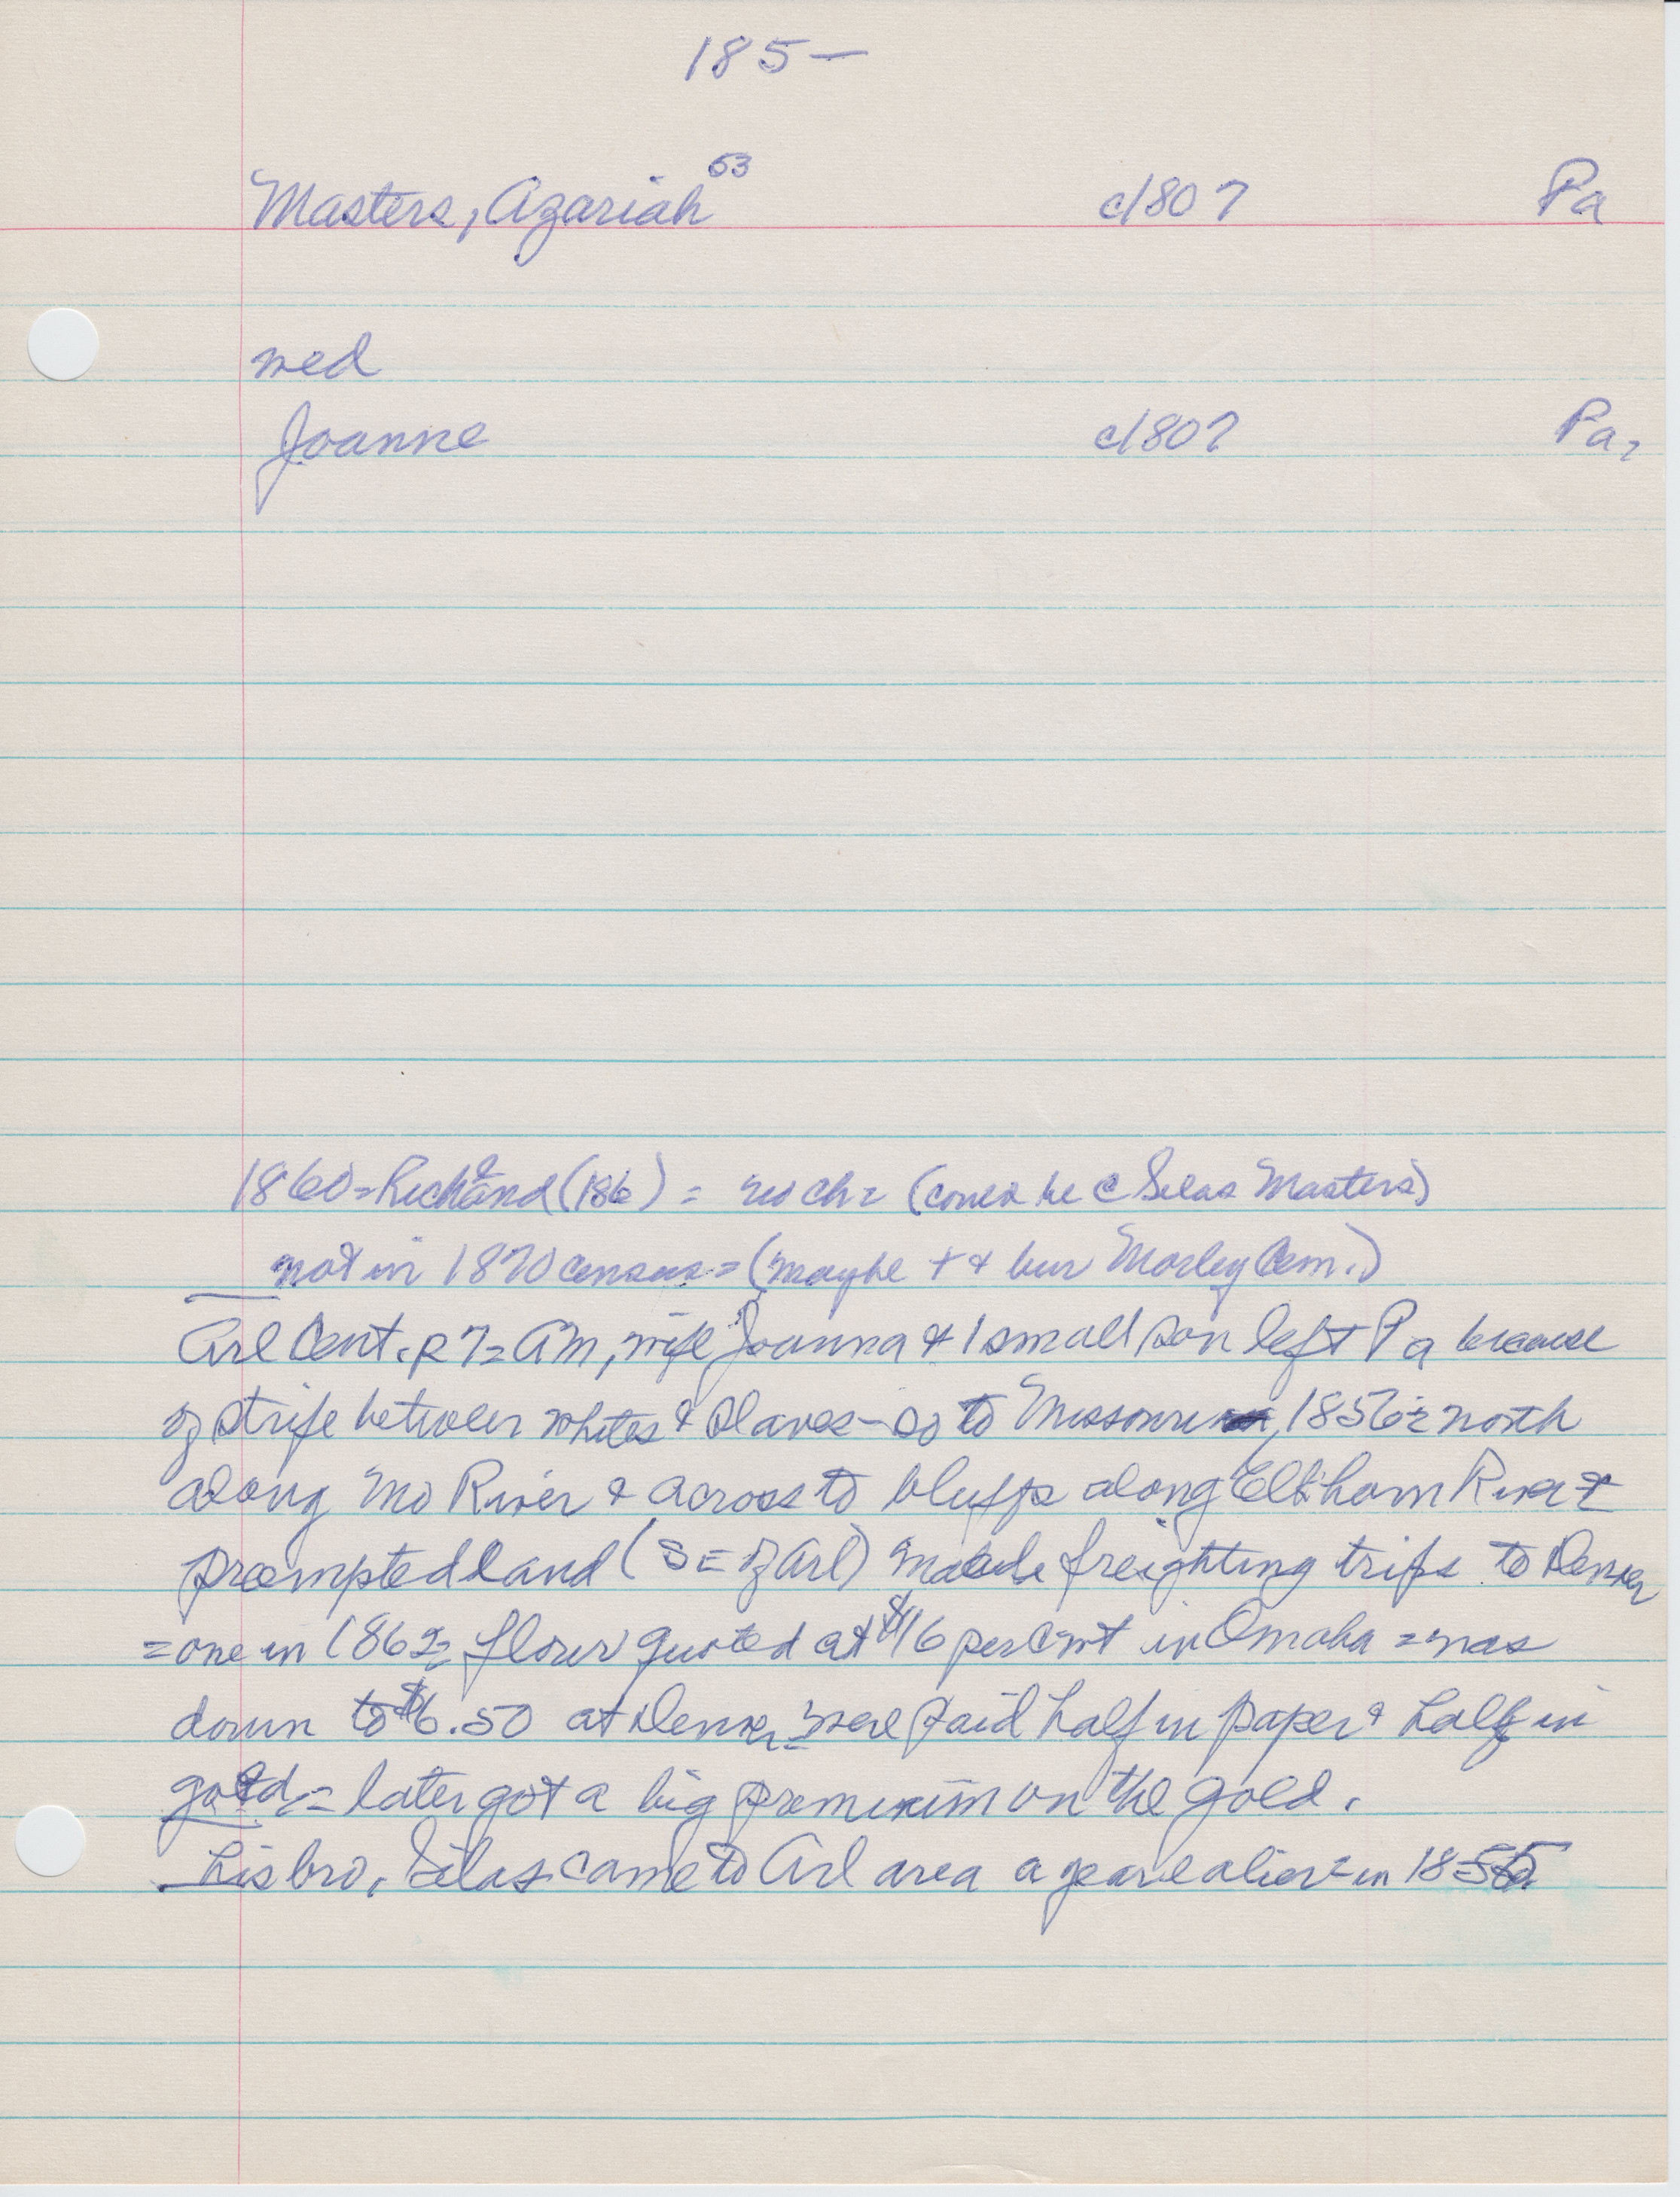 185-
Masters, Azariah 53 c1807 Pa
med
Joanne c1807 Pa,
1860 = Richland (186) = no ch = (could be c Silas Masters)
not in 1870 census = (maybe + & bur Morley Cem.)
Arl Cent. p 7 = AM, wife Joanna & 1 small son left Pa because
of strife between whites & slaves - so to Missouri, 1856 = north
along Mo River & across to bluffs along Elkhorn River &
preempted land (SE of Arl) made freighting trips to Denver
= one in 1862 = flour quoted at $16 per cwt in Omaha = was
down to $6.50 at Denver = were paid half in paper & half in
gold, = later got a big premium on the gold.
his bro, Silas came to Arl area a year ealier = in 1855